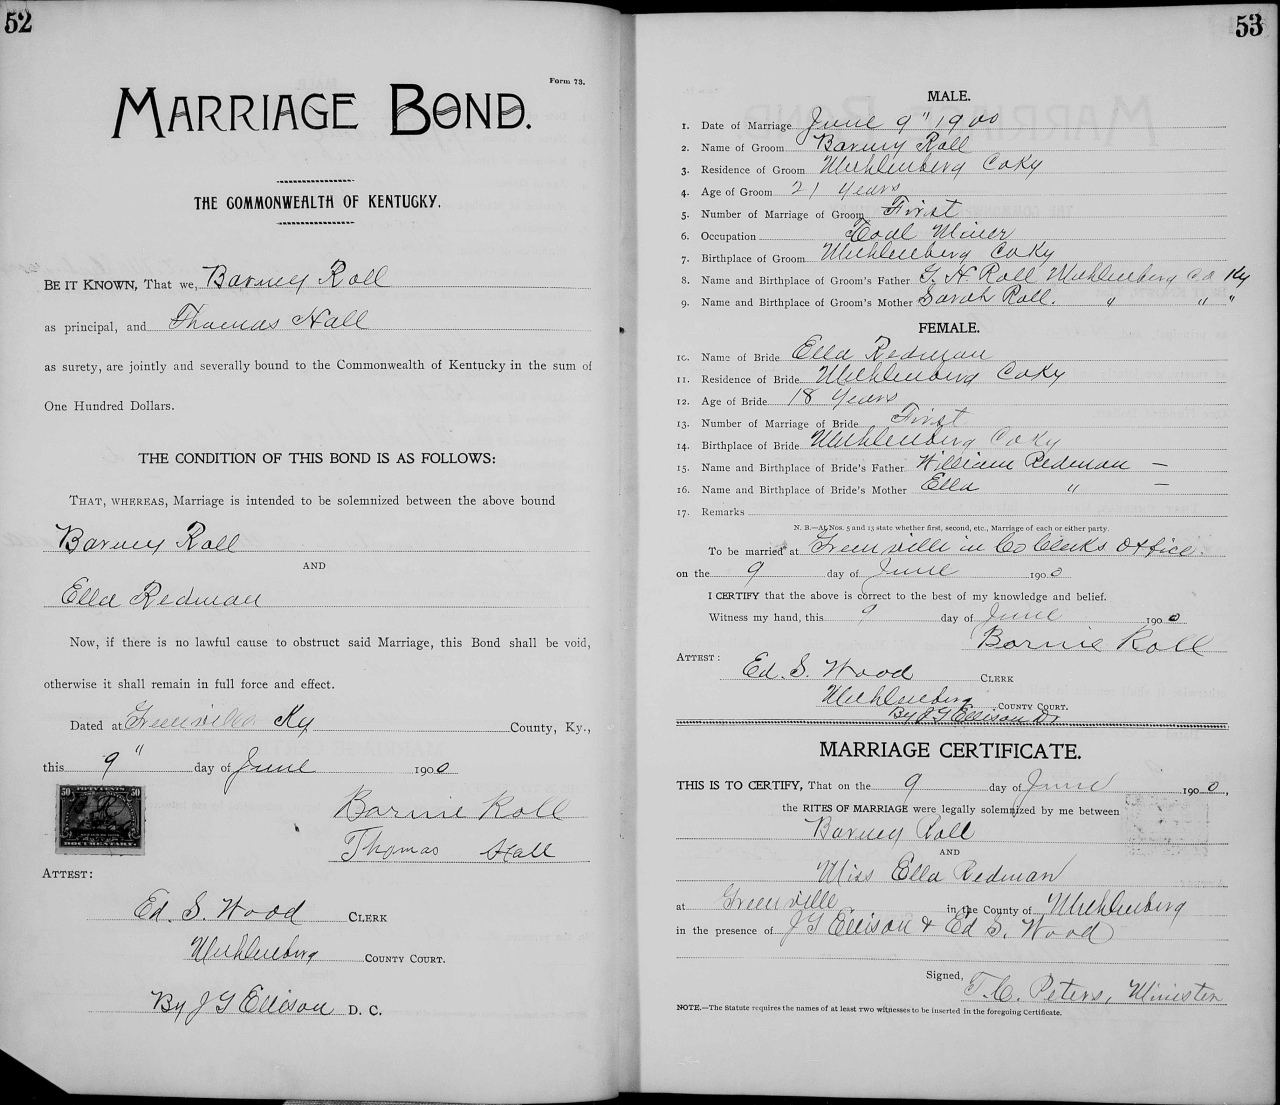 52
Form 73.
MARRIAGE BOND.
THE COMMONWEALTH OF KENTUCKY.
BE IT KNOWN, That we, Barney Roll
as principal, and Thomas Hall
as surety, are jointly and severally bound to the Commonwealth of Kentucky in the sum of
One Hundred Dollars.
THE CONDITION OF THIS BOND IS AS FOLLOWS:
THAT, WHEREAS, Marriage is intended to be solemnized between the above bound
Barney Roll
AND
Ella Redman
Now, if there is no lawful cause to obstruct said Marriage, this Bond shall be void,
otherwise it shall remain in full force and effect.
Dated at Greenville Ky County, Ky.,
this 9" day of June 1900
FIFTY CENTS
50 50
DOCUMENTARY.
Barnie Roll
Thomas Hall
ATTEST:
Ed. S. Wood CLERK
Muhlenberg COUNTY COURT.
By J G Ellison D. C.
53
MALE.
1. Date of Marriage June 9" 1900
2. Name of Groom Barney Roll
3. Residence of Groom Muhlenberg Co Ky
4. Age of Groom 21 years
5. Number of Marriage of Groom First
6. Occupation Coal Miner
7. Birthplace of Groom Muhlenberg Co Ky
8. Name and Birthplace of Groom's Father G. H. Roll Muhlenberg Co Ky
9. Name and Birthplace of Groom's Mother Sarah Roll. " " "
FEMALE.
10. Name of Bride Ella Redman
11. Residence of Bride Muhlenberg Co Ky
12. Age of Bride 18 years
13. Number of Marriage of Bride First
14. Birthplace of Bride Muhlenberg Co Ky
15. Name and Birthplace of Bride's Father William Redman —
16. Name and Birthplace of Bride's Mother Ella " —
17. Remarks
N. B.—At Nos. 5 and 13 state whether first, second, etc., Marriage of each or either party.
To be married at Greenville in Co Clerks Office.
on the 9 day of June 1900
I CERTIFY that the above is correct to the best of my knowledge and belief.
Witness my hand, this 9 day of June 1900
Barnie Roll
ATTEST:
Ed. S. Wood CLERK
Muhlenberg COUNTY COURT.
By J G Ellison DC
MARRIAGE CERTIFICATE.
THIS IS TO CERTIFY, That on the 9 day of June 1900,
the RITES OF MARRIAGE were legally solemnized by me between
Barney Roll
AND
Miss Ella Redman
at Greenville in the County of Muhlenberg
in the presence of J G Ellison & Ed S. Wood
Signed, T. C. Peters, Minister
NOTE.—The Statute requires the names of at least two witnesses to be inserted in the foregoing Certificate.